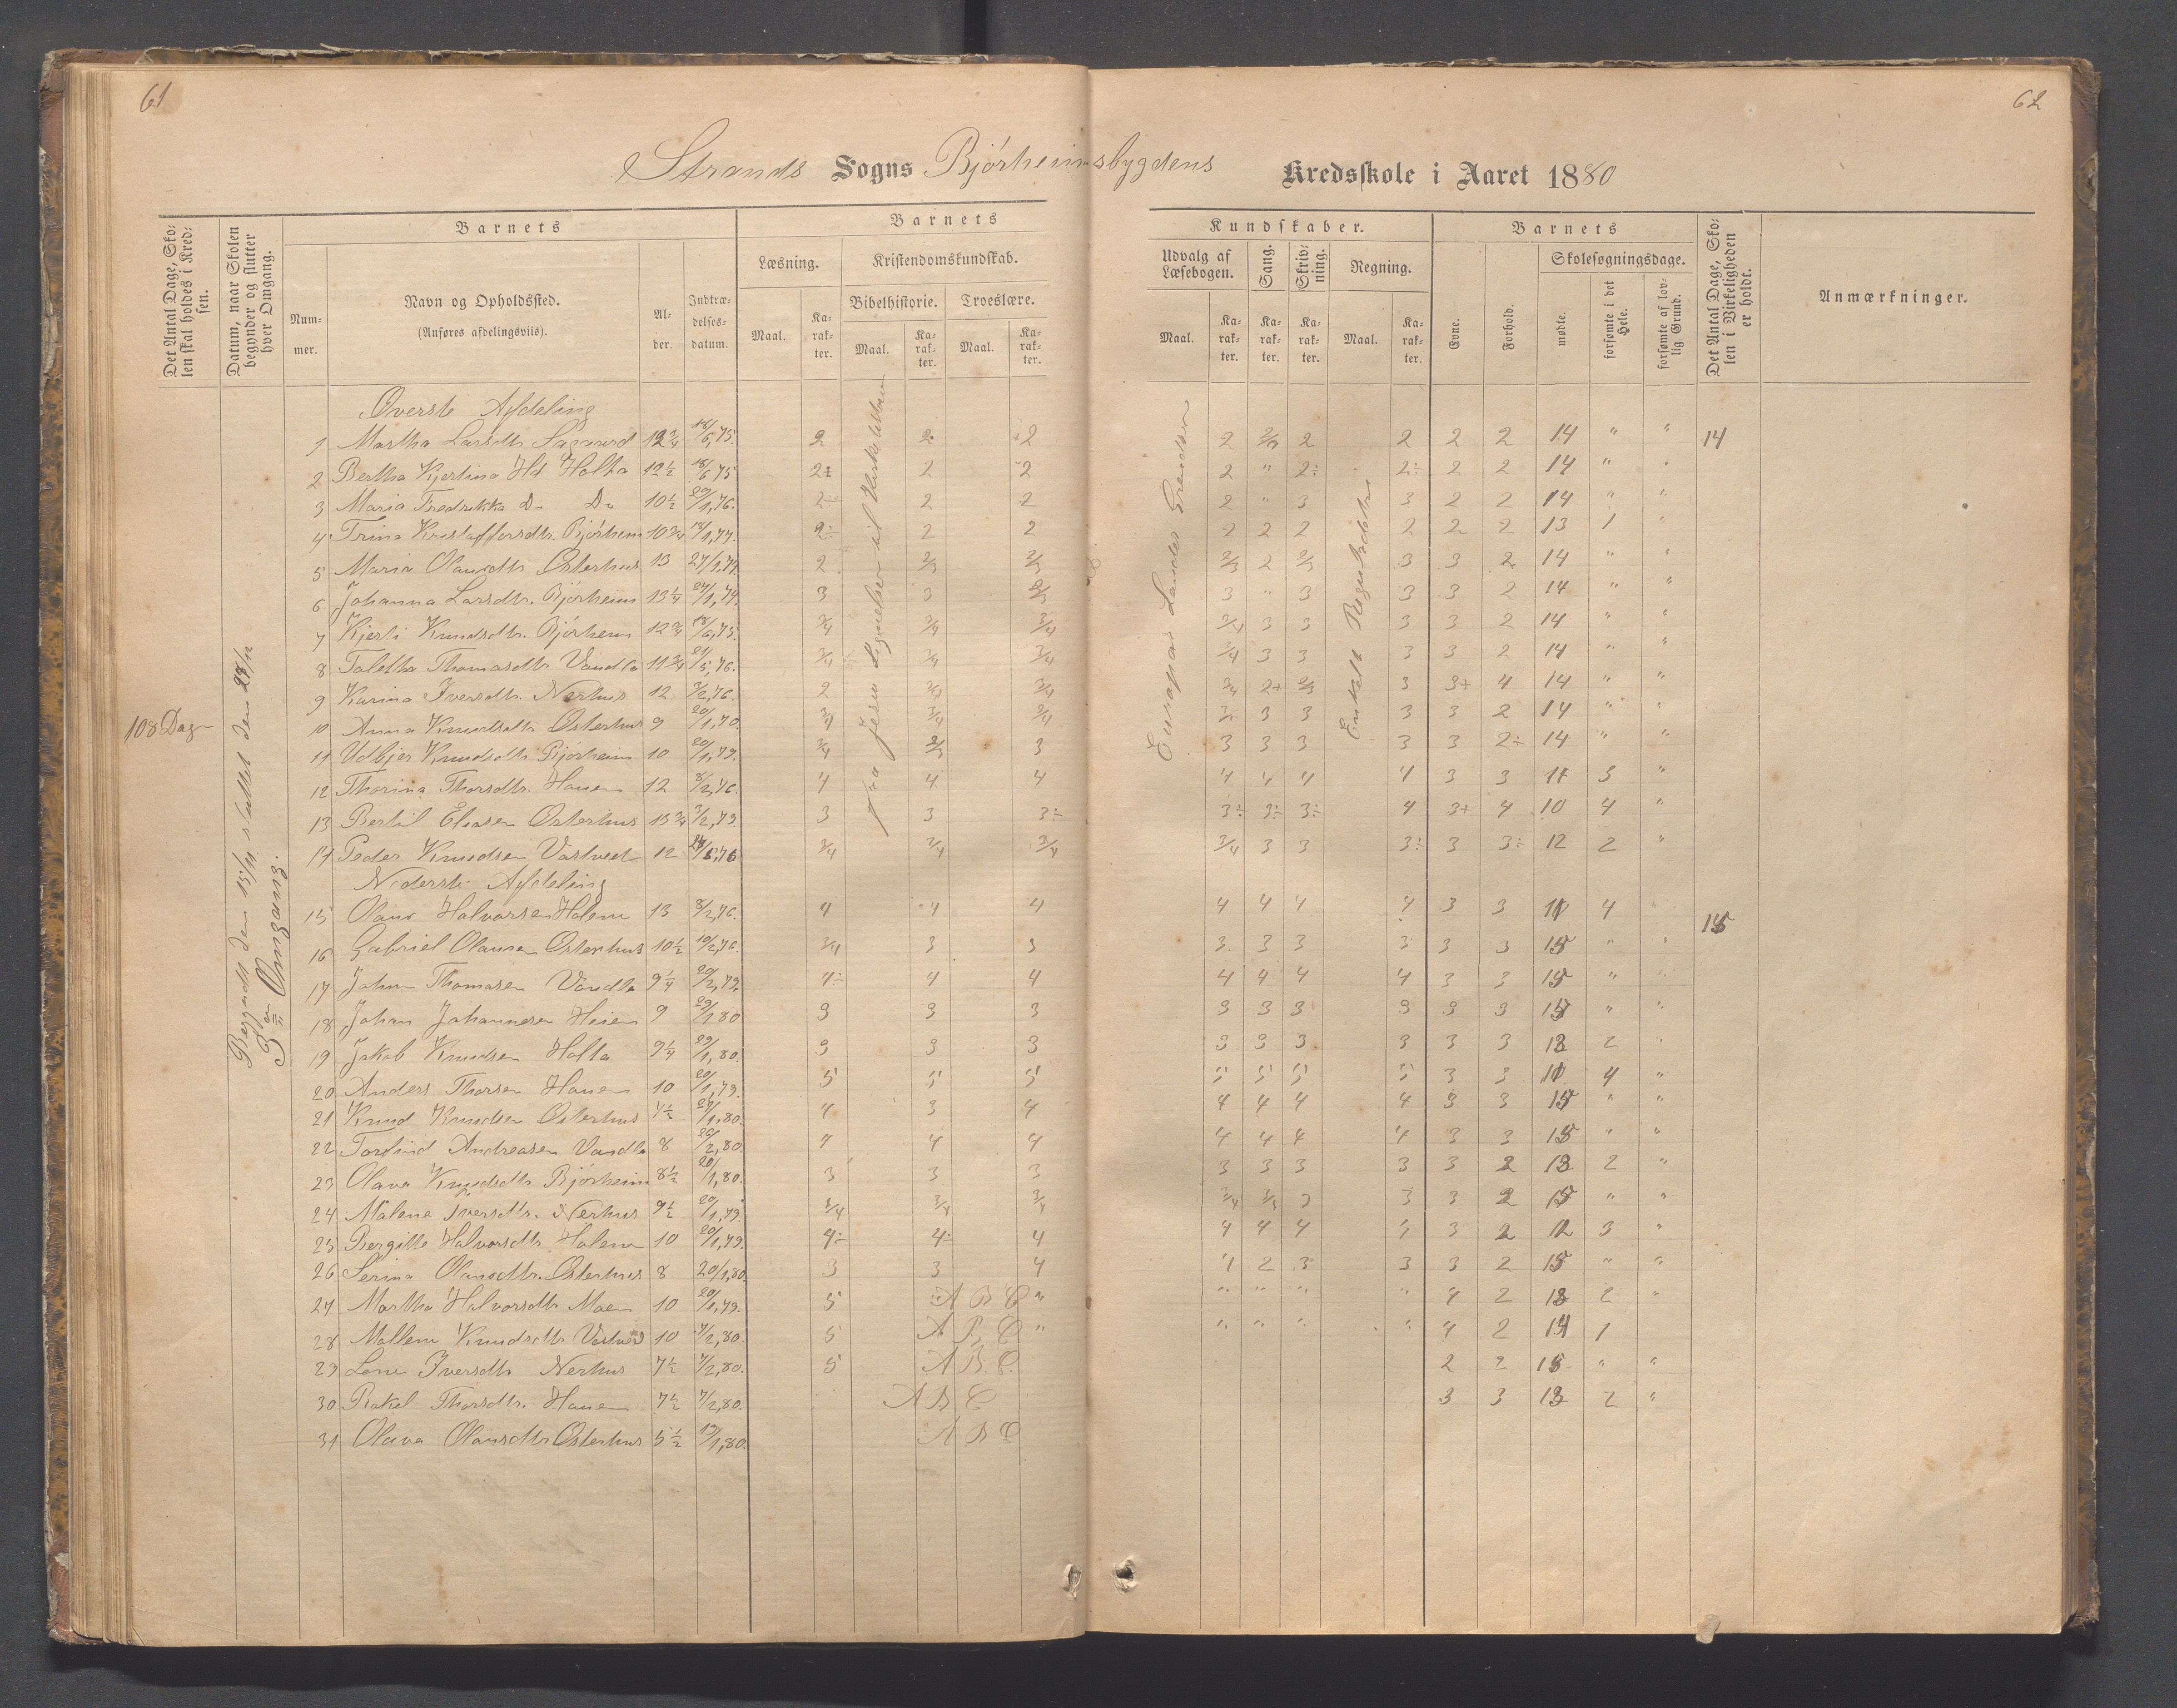 61
62
Strands Sogns Bjórheimsbygdens Kredsskole i Aaret 1880
Det Antal Dage, Skolen skal holdes i Kredsen.
Datum, naar Skolen begynder og slutter hver Omgang.
Barnets
Nummer.
Navn og Opholdssted.
(Anføres afdelingsviis).
Alder.
Indtrædelsesdatum.
Barnets
Læsning.
Maal.
Karakter.
Kristendomskundskab.
Bibelhistorie.
Maal.
Karakter.
Troeslære.
Maal.
Karakter.
Kundskaber.
Udvalg af Læsebogen.
Maal.
Karakter.
Sang.
Karakter.
Skrivning.
Karakter.
Regning.
Maal.
Karakter.
Barnets
Evne.
Forhold.
Skolesøgningsdage.
mødte.
forsømte i det Hele.
forsømte af lovlig Grund.
Det Antal Dage, Skolen i Virkeligheden er holdt.
Anmærkninger.
108 Dage
Begyndt den 15/11 sluttet den
3die Omgang.
Øverste Afdeling
1 Martha Larsdtr 12 3/4 18/6,75. 2 2 2 2 2/3 2 2 2 2 14 " " 14
2 Bertha Kjerstina Hd Holta 12 1/2 18/6 75 2÷ 2 2 2 " 2÷ 2÷ 2 2 14 " "
3 Maria Fredrikke Do Do 10 1/2 29/1,76. 2÷ 2 2 2 " 3 3 2 2 14 " "
4 Trina Kristoffersdtr. Bjórheim 10 3/4 18/1,77. 2÷ 2 2 2 2 2 2 2 2 13 1 "
5 Maria Olausdtr Østerhus 13 27/1,74. 2 2/3 2/3 2/3 2 2/3 3 3 2 14 " "
6 Johanna Larsdtr. Bjórheim 13 1/4 27/1,74. 3 3 2/3 3 " 3 3 3 2 14 " "
7 Kjersti Knudsdtr. Bjórheim 12 3/4 18/6,75. 3/4 3/4 3/4 3/4 3 3 3 3 2 14 " "
8 Taletha Thomasdtr Vandla 11 3/4 24/5,76. 3/4 3/4 3/4 3/4 3 3 3 3 2 14 " "
9 Karina Iversdtr. Nerhus 12 3/2,76. 2 2/3 3/4 3/4 2+ 2/3 3 3+ 4 14 " "
10 Anna Knudsdtr Østerhus 9 20/1,70. 3/4 3/4 3/4 3 3 3 3 3 2 14 " "
11 Udbjer Knudsdtr Bjórheim 10 20/1,79. 3/4 2/3 3 3 3 3 3 3 2÷ 14 " "
12 Thorina Thorsdtr. Hauen 12 8/2,76. 4 4 4 4 4 4 4 3 3 11 3 "
13 Bertil Eliasen Østerhus 13 3/4 3/2,79 3 3 3÷ 3÷ 3÷ 3÷ 4 3+ 4 10 4 "
14 Peder Knudsen 12 3/4 3/4 3/4 3/4 3 3 3÷ 3 3÷ 12 2 "
Nederste Afdeling
15 Olaus Halvorsen Holene 13 8/2,76. 4 4 4 4 4 4 4 3 3 11 4 15
16 Gabriel Olausen Østerhus 10 1/2 10/2,76. 3/4 3 3 3 3 3 3 3 3 15 " "
17 Johan Thomasen Vandla 9 1/4 20/2,79. 4÷ 4 4 4 4 4 4 3 3 15 " "
18 Johan Johannesen Heien 9 29/1 80 3 3 3 3 3 3 3 3 3 15 " "
19 Jakob Knudsen Holta 9 1/4 29/1,80. 3 3 3 3 3 3 3 3 3 13 2 "
20 Anders Thorsen Hauen 10 20/1,79. 5 5 5 5 5 5 5 3 3 11 4 "
21 Knud Knudsen Østerhus 7 1/2 29/1,80. 4 3 4 4 4 4 4 3 3 15 " "
22 Torfind Andreasen Vandla 8 26/2,80. 4 4 4 4 4 4 4 3 3 15 " "
23 Olava Knudsdtr Bjórheim 8 1/2 20/1,80. 3 3 3 3 3 3 3 3 2 13 2 "
24 Malena Iversdtr. Nerhus 9 1/2 20/1,79. 3/4 3/4 3/4 3/4 3/4 3 3 3 2 15 " "
25 Bergitte Halvorsdtr Holene 10 20/1,79. 4÷ 4÷ 4 4 4 4 4 3 2 12 3 "
26 Serina Olausdtr. Østerhus 8 20/1,80. 3 3 4 4 2 3 3 3 2 15 " "
27 Martha Halvorsdtr Moen 10 20/1,79. 5 A B C " " " " " 4 2 13 2 "
28 Mallene Knudsdtr 10 4/2,80. 5 A B C " " " " " 4 2 14 1
29 Lene Iversdtr Nerhus 7 1/2 4/2,80. 5 A B. C. 2 2 15 " "
30 Rakel Thorsdtr. Hauen 7 1/2 4/2,80. A B C 3 3 13 2 "
31 Olava Olausdtr Østerhus 5 1/2 19/1,80. A B C
Fra Jesu Lignelser til
Europas Lande
Enkelt Reguladetri